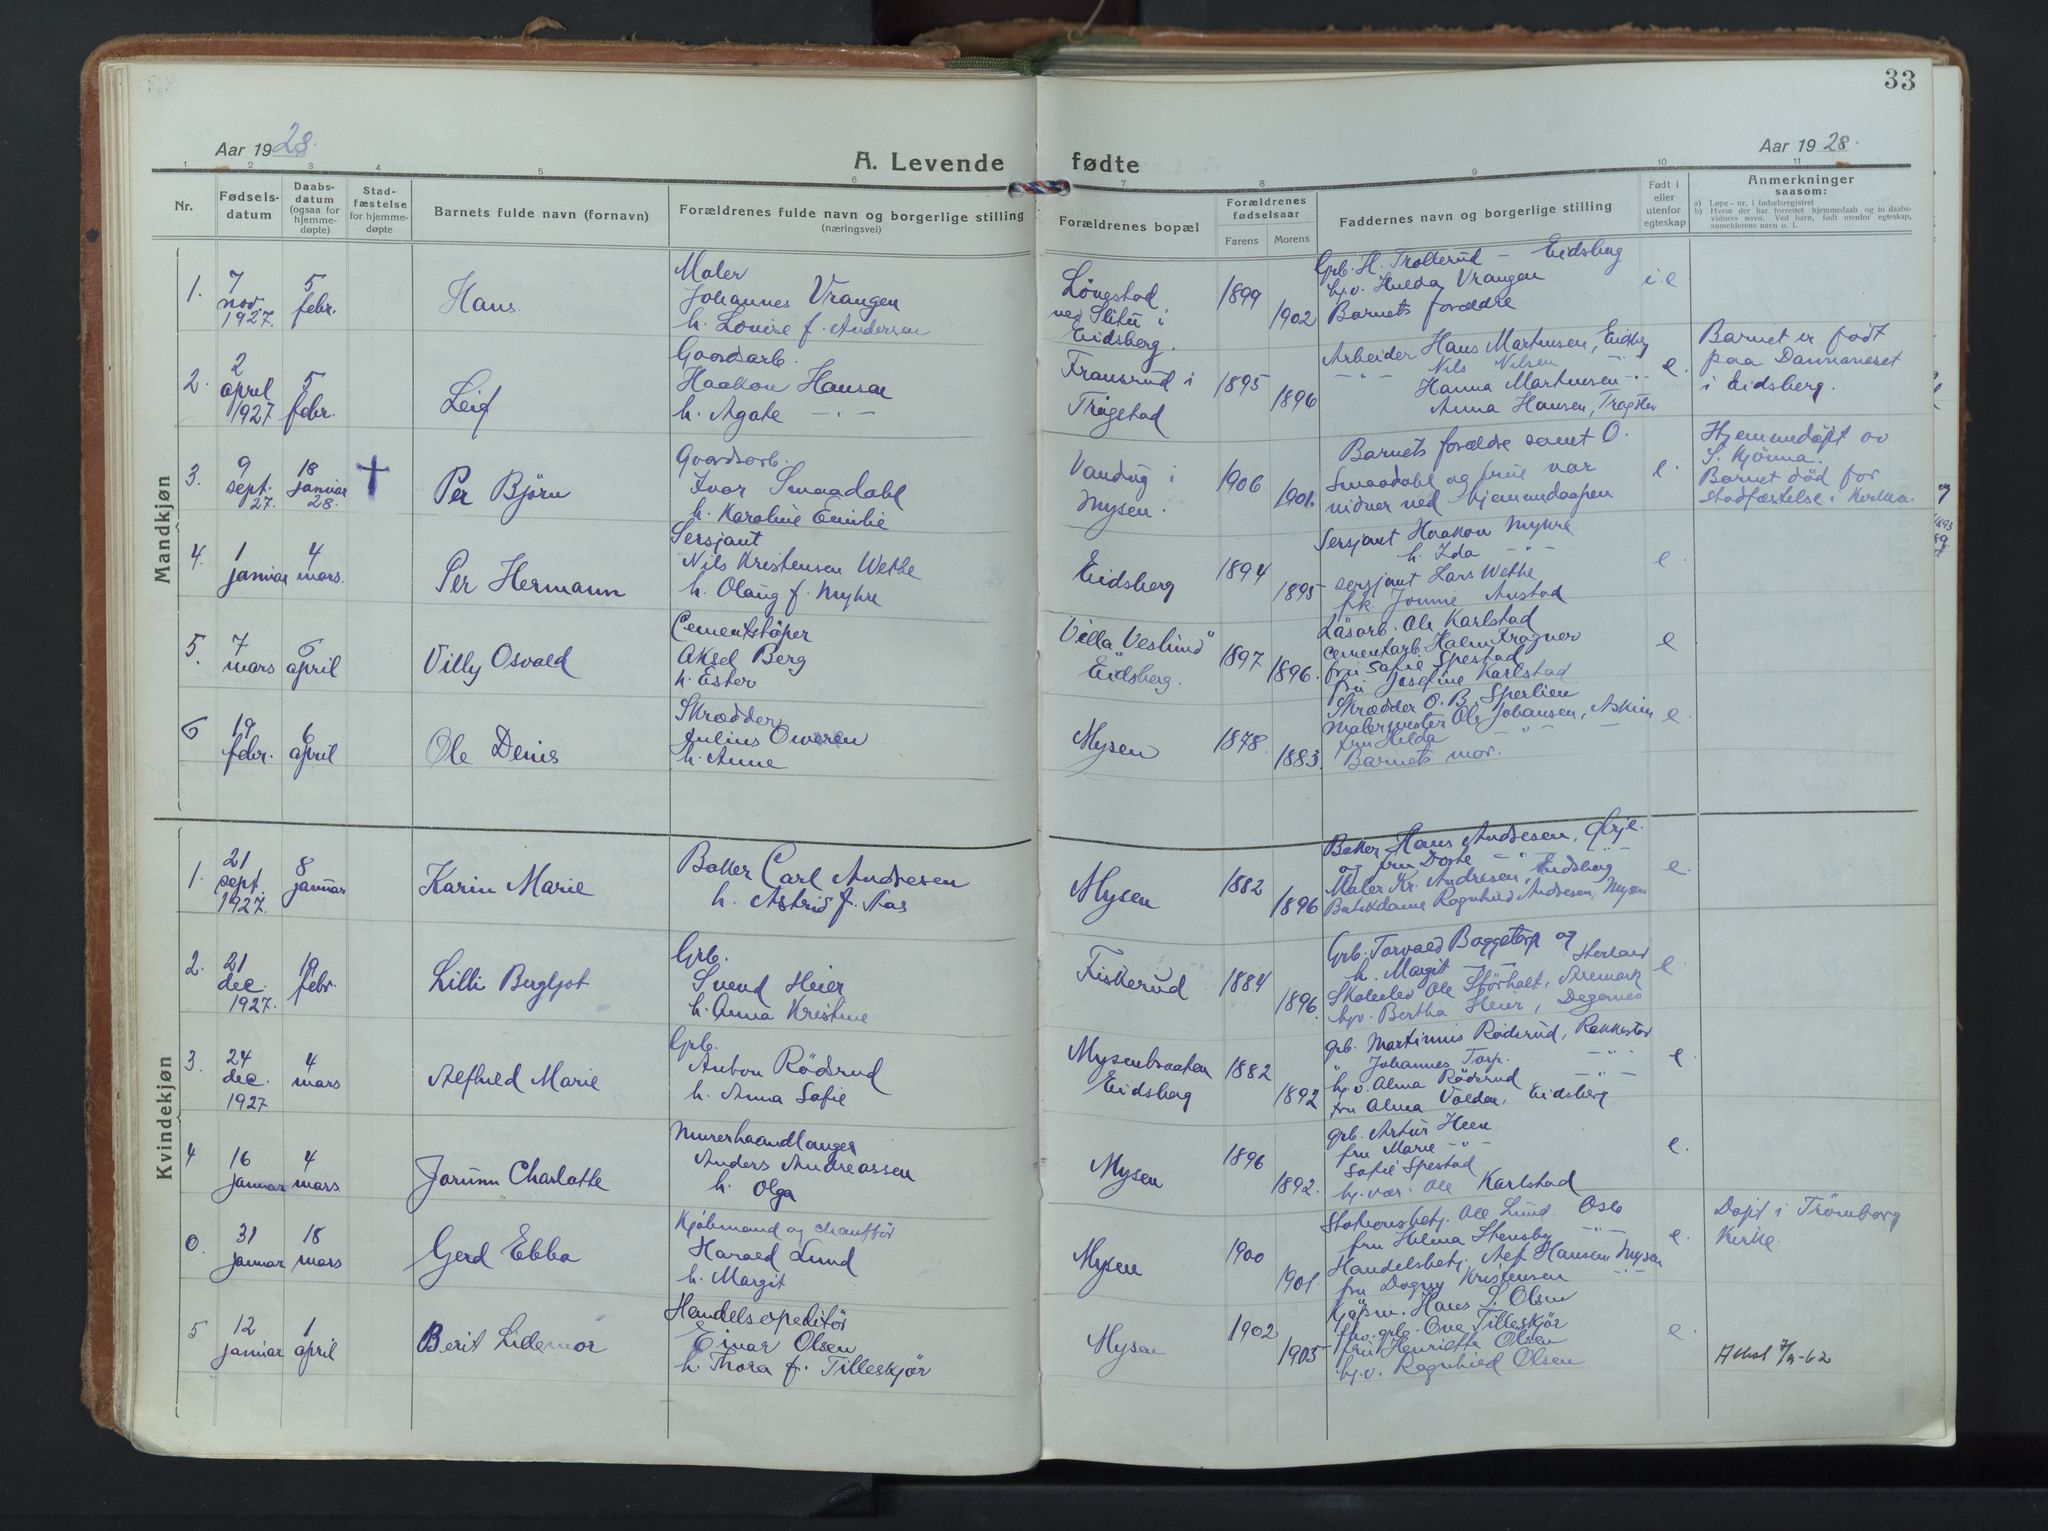 33
Aar 1928.
A. Levende fødte
Aar 1928.
1 2 3 4 5 6 7 8 9 10 11
Nr.
Fødsels-
datum
Daabs-
datum
(ogsaa for
hjemme-
døpte)
Stad-
fæstelse
for hjemme-
døpte
Barnets fulde navn (fornavn)
Forældrenes fulde navn og borgerlige stilling
(næringsvei)
Forældrenes bopæl
Forældrenes
fødselsaar
Farens
Morens
Faddernes navn og borgerlige stilling
Født i
eller
utenfor
egteskap
Anmerkninger
saasom:
a) Løpe-nr. i fødselsregistret
b) Hvem der har forrettet hjemmedaab og to daabs-
vidners navn. Ved barn, født utenfor egteskap,
anmelderens navn o. l.
Mandkjøn
1.
7
nov.
1927.
5
febr.
Hans
Maler
Johannes Vrangen
h. Louise f. Andersen
Lönestad
ved Slitu i
Eidsberg.
1899
1902
Grb. H. Trollerud - Eidsberg
hv. Hulda Vrangen
Barnets forældre
i.e
2.
2
april
1927
5
febr.
Leif
Gaardsarb.
Haakon Hansen
h. Agate -"-
Fransrud i
Trøgstad
1895
1896
Arbeider Hans Martinsen, Eidsberg
-"- Nils Nilsen -"-
Hanna Martinsen -"-
Anna Hansen, Trøgstad
e.
Barnet er født
paa Dannaneset
i Eidsberg.
3.
9
sept.
27.
18
januar
28.
†
Per Björn
Gaardsarb.
Ivar Smaadahl
h. Karoline Emilie
i
Mysen.
1906
1901.
Barnets forældre samt O.
Smaadahl og frue var
vidner ved hjemmedaapen
e.
Hjemmedöpt av
S. Kjönna.
Barnet död för
stadfæstelse i Kirken.
4.
1
januar
4
mars.
Per Hermann
Sersjant
Nils Kristensen Wethe
h. Olaug f. Myhre
Eidsberg
1894
1895
Sersjant Haakon Myhre
h. Ida -"-
sersjant Lars Wethe
frk. Jonnie Anstad
e
5.
7
mars
6
april
Villy Osvald
Cementstøper
Aksel Berg
h. Ester
Villa "Veslund"
Eidsberg.
1897
1896.
Ole Karlstad
cementarb. Halm Fragner
fru Safie Spestad
fru Josefine Karlstad
e
6
19
febr.
6
april
Ole Denis
Skrædder
Julius Oweren
h. Anne
Mysen
1878.
1883.
Skrædder O. B. Sperlien
Malermester Ole Johansen, Askim
fru Hilda -"-
Barnets mor.
e.
Kvindekjøn
1.
21
sept.
1927.
8
januar
Karin Marie
Baker Carl Andresen
h. Astrid f. Aas
Mysen
1882
1896
Baker Hans Andresen, Ørje.
og fru Dorte -"-
Maler Kr. Andresen, Eidsberg
Butikdame Ragnhild Andresen, Mysen
e.
2.
21
dec.
1927.
19
febr.
Lilli Bergljot
Grb.
Svend Heier
h. Anna Kristine
Fiskerud
1884
1896.
Grb. Torvald Baggetorp og
h. Margit
Skoleelev Ole Störholt, Aremark
hv. Bertha Heier, Degernes
e
3.
24
dec.
1927
4
mars
Alfhild Marie
Grb.
Anton Rödsrud
h. Anna Safie
Mysenbraaten
Eidsberg
1882
1892
grb. Martinius Rödsrud, Rakkestad
" Johannes Torp. -"-
h.v. Alma Rödsrud -"-
fru Alma Volden, Eidsberg
e
4
16
januar
4
mars
Jorunn Charlotte
Murerhaandlanger
Anders Andreassen
h. Olga
Mysen
1896
1892.
grb. Artur Heen
fru Marie -"-
Safie Spestad
Ole Karlstad
e.
0.
31
januar
18
mars
Gerd Ebba
Kjöbmand og chaufför
Harald Lund
h. Margit
Mysen
1900
1901
Stationsbetj. Ole Lund, Oslo
fru Helma Stensby -"-
Handelsbetj. Alf Hansen Mysen
fru Dagny Kristensen -"-
e.
Döpt i Trömborg
Kirke.
5
12
januar
1
april
Berit Lidemor
Handelsexpeditör
Einar Olsen
h. Thora f. Tilleskjör
Mysen
1902
1905
Kjøbm. Hans S. Olsen
Ove Tilleskjör
fru Henriette Olsen
hv. Ragnhild Olsen
e.
Attest 7/9-62